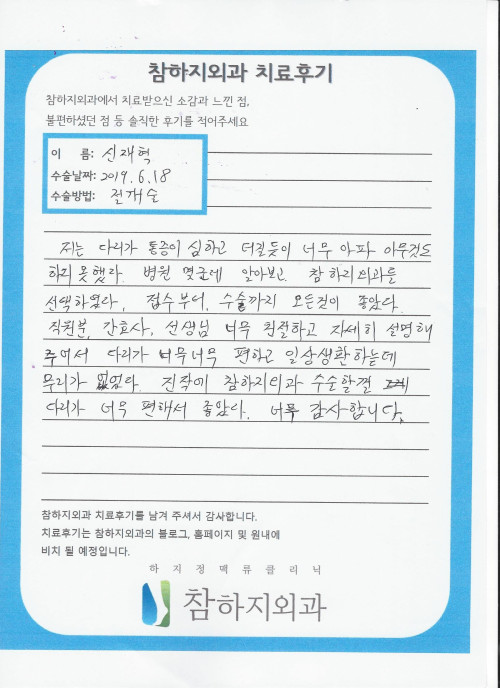 참하지외과 치료후기
참하지외과에서 치료받으신 소감과 느낀 점,
불편하셨던 점 등 솔직한 후기를 적어주세요
이 름: 신재혁
수술날짜: 2019. 6. 18
수술방법: 절개술
저는 다리가 통증이 심하고 터질듯이 너무 아파 아무것도
하지 못했다. 병원 몇군데 알아보고. 참하지외과를
선택하였다, 접수부터, 수술까지 모든것이 좋았다.
직원분, 간호사, 선생님 너무 친절하고 자세히 설명해
주여서 다리가 너무너무 편하고 일상생환하는데
무리가 없었다. 진작에 참하지외과 수술할껄
다리가 너무 편해서 좋았다. 너무 감사합니다.
참하지외과 치료후기를 남겨 주셔서 감사합니다.
치료후기는 참하지외과의 블로그, 홈페이지 및 원내에
비치 될 예정입니다.
하지정맥류클리닉
참하지외과